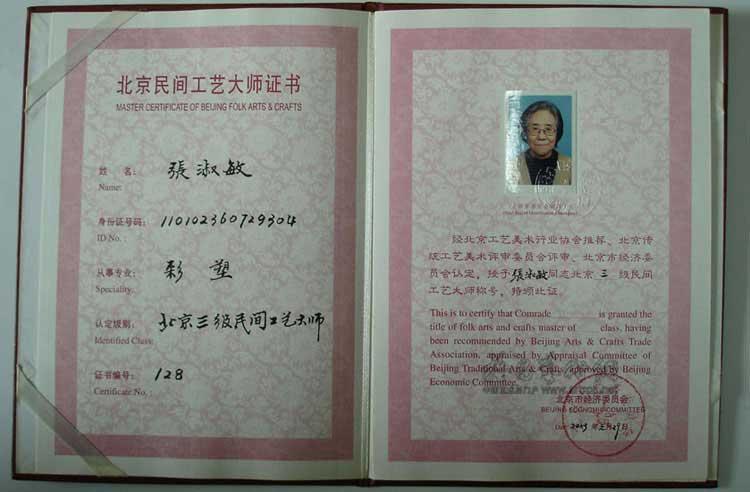 北京民间工艺大师证书
MASTER CERTIFICATE OF BEIJING FOLK ARTS & CRAFTS
姓 名: 張淑敏
Name:
身份证号码: 110102360729304
ID No. :
从事专业: 彩塑
Speciality:
认定级别: 北京三级民间工艺大师
Identified Class:
证书编号: 128
Certificate No. :
经北京工艺美术行业协会推荐、北京传
统工艺美术评审委员会评审、北京市经济委
员会认定,授予張淑敏同志北京 三 级民间
工艺大师称号,特颁此证。
This is to certify that Comrade is granted the
title of folk arts and crafts master of class, having
been recommended by Beijing Arts & Crafts Trade
Association, appraised by Appraisal Committee of
Beijing Traditional Arts & Crafts, approved by Beijing
Economic Committee.
北京市经济委员会
BEIJING ECONOMIC COMMITTEE
Date: